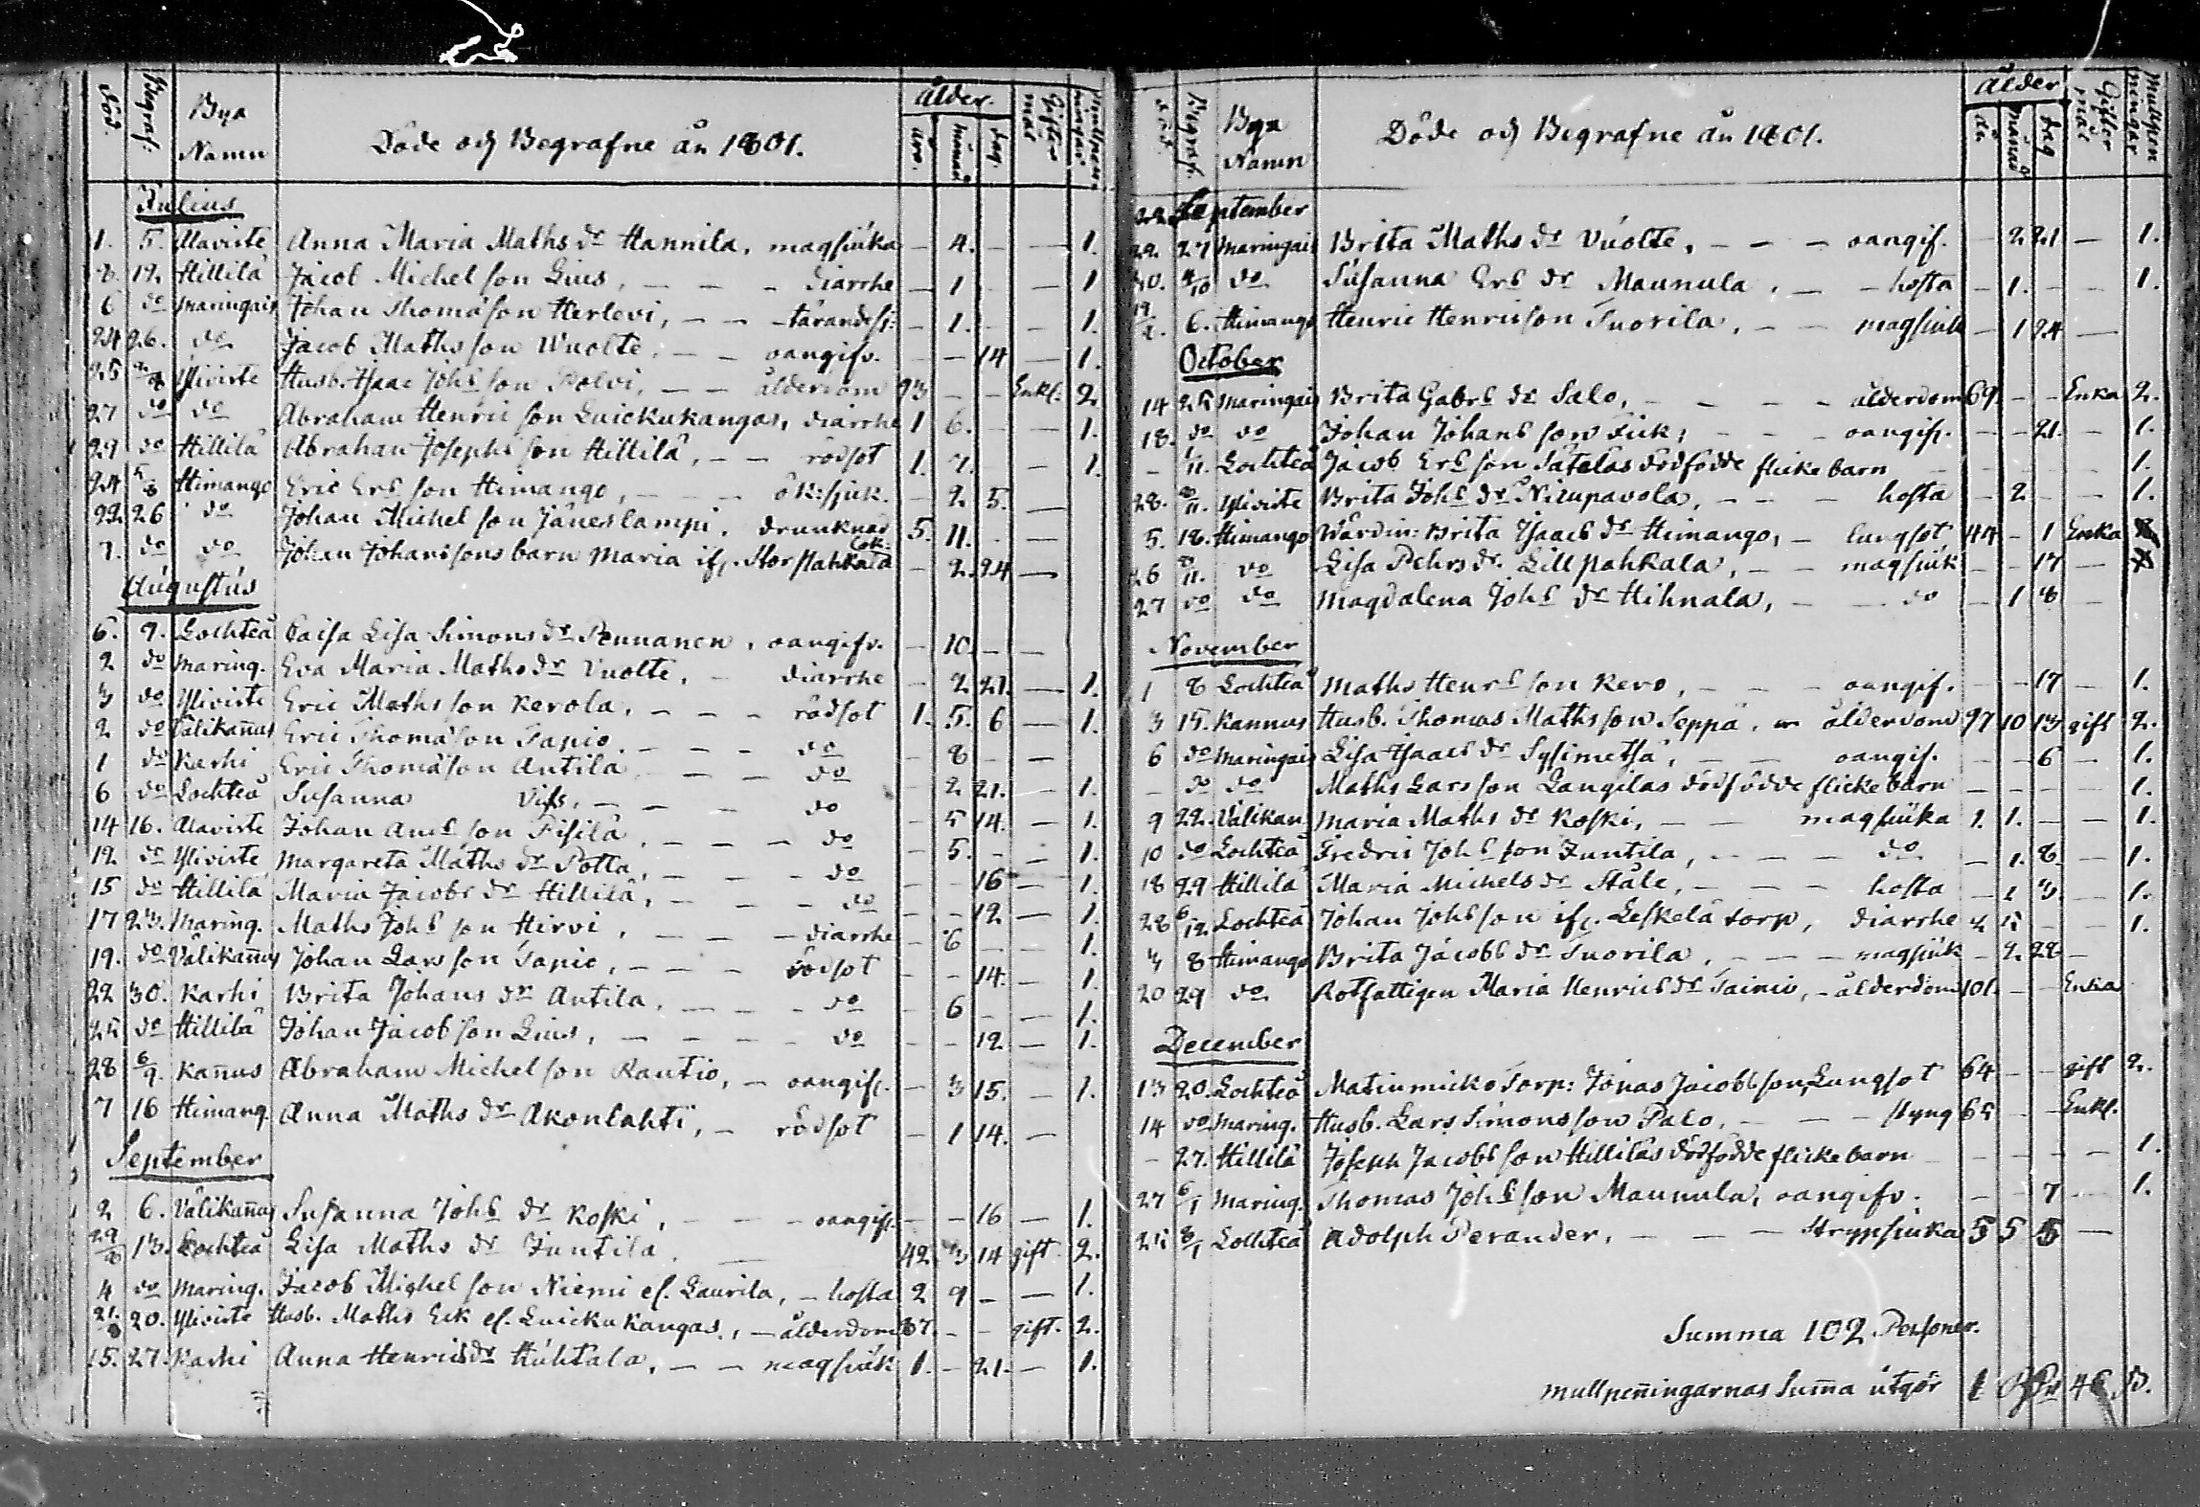 död. Begraf: Bya Namn Döde och Begrafne år 1801. ålder. åro. månad dag. Gifter mål mullpenningar
Julius
1. 5. Alaviste Anna Maria Maths dr Hannila, magsiuka - 4. - - 1.
8. 12. Hillilä Jacob Michelsson Lius, - - - diarrhe - 1 - - 1
6 do Maringais Johan Thomasson Herlevi, - - - 1. - - 1.
24 26. do Jacob Mathsson Wuolte. - - oangifv. - - 14 - 1.
25 2/8 Yliviste Husb. Isaac Johs son Polvi, - - ålderdom 93 - - Enkl. 2
27 do do Abraham Henricsson Luickukangas, diarrhe 1 6. - - 1.
29 do Hillilä Abraham Josephsson Hillilä, - - rödsot 1. 7. - - 1.
24 5/8 Himango Eric Ers son Himango, - - ok: sjuk. - 2 5. -
22 26 do Johan Michelsson Jäneslampi. drunknad 5. 11. - -
7. do do Johan Johanssons barn Maria if. Storpahkala ok: - 2. 24 -
Augustus
6. 9. Lochteå Caisa Lisa Simons dr Pennanen, oangifv. - 10. - -
2 do Maring. Eva Maria Maths dr Vuolte, - diarrhe - 2 21. - 1.
3 do Yliviste Eric Mathsson Kerola, - - - rödsot 1. 5. 6 - 1.
2 do Välikañus Eric Thomasson Tapio. - - - do - 8 - -
1 do Karhi Eric Thomasson Antila - - - do - 2 21. - 1.
6 do Lochteå Susanna Viss, - - - do - 5 14. - 1.
14 16. Alaviste Johan Ands son Fisilä, - - - do - 5. - - 1.
12 do Yliviste Margareta Maths dr Potta, - - - do - - 16 - 1.
15 do Hillilä Maria Jacobs dr Hillilä, - - - do - - 12 - 1.
17 23. Maring. Maths Johs son Hirvi, - - - diarrhe - 6 - - 1.
19. do Välikañus Johan Larsson Tapio, - - - rödsot - - 14. - 1.
22 30. Karhi Brita Johans dr Antila, - - - do - 6 - - 1.
25 do Hillilä Johan Jacobsson Lius, - - - do - - 12 - 1.
28 6/9. Kañus Abraham Michelsson Rautio, - oangifv. - 3 15. - 1.
7 16 Himang. Anna Maths dr Akonlahti, - rödsot - 1 14. -
September
2 6. Välikañus Susanna Johs dr Koski, - - - oangifv. - - 16 - 1.
29/8 13. Lochteå Lisa Maths dr Juntila. 42. 3 14 gift. 2.
4 do Maring. Jacob Michelsson Niemi el. Laurila, - hosta 2 9 - - 1.
21. 20. Yliviste Husb. Maths Eck el. Luickukangas, - ålderdom 87. - - gift. 2.
15. 27. Karhi Anna Henrics dr Huhtala, - - magsiuk 1. - 21. - 1.
död. Begraf. Bya Namn Döde och Begrafne år 1801. ålder år månad dag Gifter mål Mullpenningar
September
22. 27 Maringais Brita Maths dr Vuolte, - - - oangif. - 2 21 - 1.
30. 4/10 do Susanna Ers dr Maunula, - - hosta - 1. - - 1.
6. Himango Henric Henricsson Tuorila, - - magsiuk - 1 24 -
October
14 25 Maringais Brita Gabrs dr Salo, - - - - ålderdom 69. - - Enka 2.
18. do do Johan Johans son Fick, - - - oangif. - - 21. - 1.
- 1/11. Lochteå Jacob Ers son Sätelas dödfödde flickebarn - - - - 1.
28. 8/11. Yliviste Brita Johs dr Niemipavola, - - - hosta - 2 - - 1.
5. 18. Himango Wärdin: Brita Isaacs dr Himango, - lungsot 44 - 1 Enka
26 8/11. do Lisa Pehrs dr Lillpahkala, - - magsiuk - - 17 -
27 do do Magdalena Johs dr Hihnala, - - do - 1 8 -
November
1 8 Lochteå Maths Henrs son Kero, - - - oangif. - - 17 - 1.
3 15. Kannus Husb. Thomas Mathsson Seppä, ålderdom 77 10 13 gift 2.
6 do Maringais Lisa Isaacs dr Sysimetsä, - - oangif. - - 6 - 1.
- do do Maths Larsson Langilas dödfödde flickebarn - - - - 1.
9 22. Välikan Maria Maths dr Koski, - - magsiuka 1. 1. - - 1.
10 do Lochteå Fredric Johs son Juntila, - - - do - 1. 8. - 1.
18 29 Hillilä Maria Michels dr Ståle, - - - hosta - 1 3. - 1.
28 6/12. Lochteå Johan Johs son if. Leskelä torp, diarrhe 2 5 - - 1.
3 8 Himango Brita Jacobs dr Tuorila, - - - magsiuk - 2 28 -
20 29 do Rotfattigen Maria Henrics dr Tainio, - ålderdom 101. - - Enka
December
13 20. Lochteå Matinmicko torp: Jonas Jacobsson, Lungsot 64 - - gift 2.
14 do Maring. Husb. Lars Simonsson Palo, - - styng 65 - - Enkl.
- 27. Hillilä Joseph Jacobsson Hillilas dödfödde flickebarn - - - - 1.
27 6/1 Maring. Thomas Johs son Maunula, oangifv. - - 7 - 1.
25 8/1 Lochteå Adolph Perander, - - - Strypsiuka 5 5 5 -
Summa 102 Personer.
Mullpeñingarnas Suma utgör 1 Rdr 46 s.